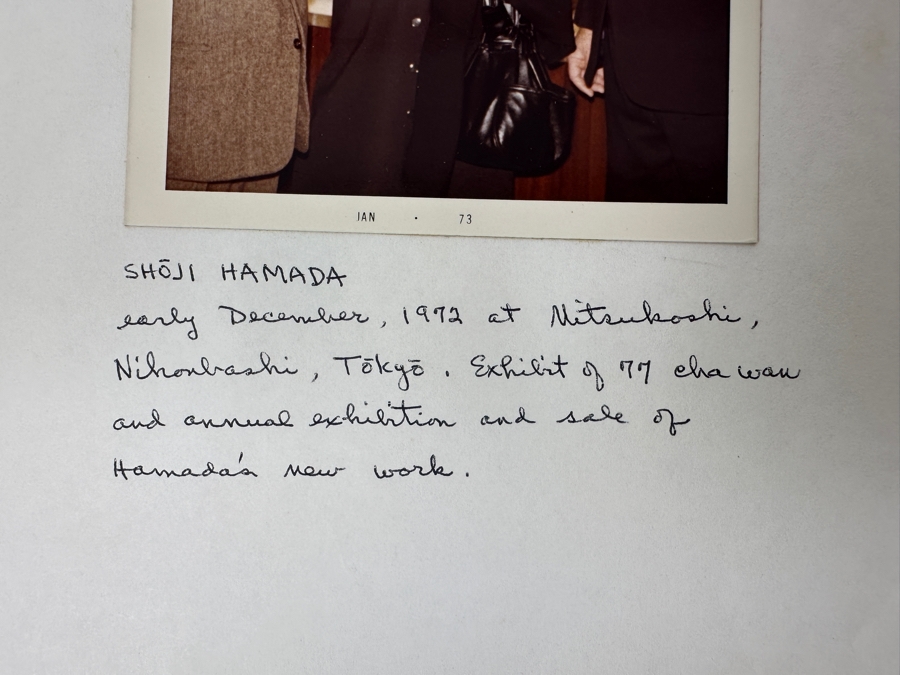 JAN · 73
SHŌJI HAMADA
early December, 1972 at Mitsukoshi,
Nihonbashi, Tōkyō. Exhibit of 77 chawan
and annual exhibition and sale of
Hamada's new work.